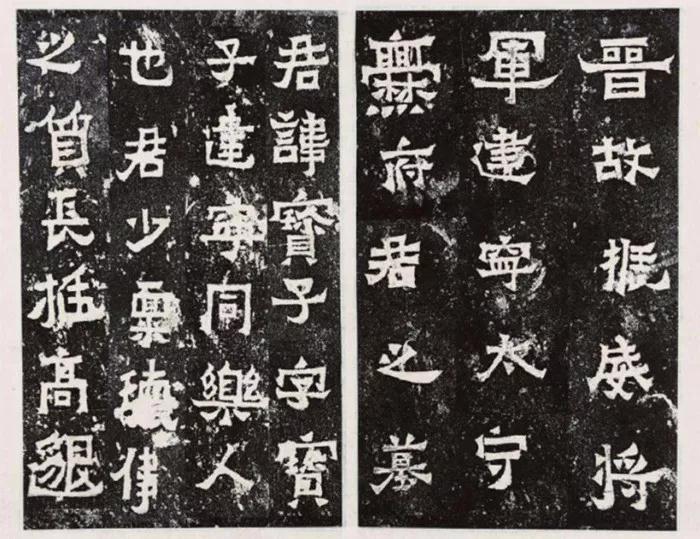 晋故振威将
軍建寧太守
爨府君之墓
君諱寶子字寶
子建寧同樂人
也君少稟瓌偉
之質長挺高邈